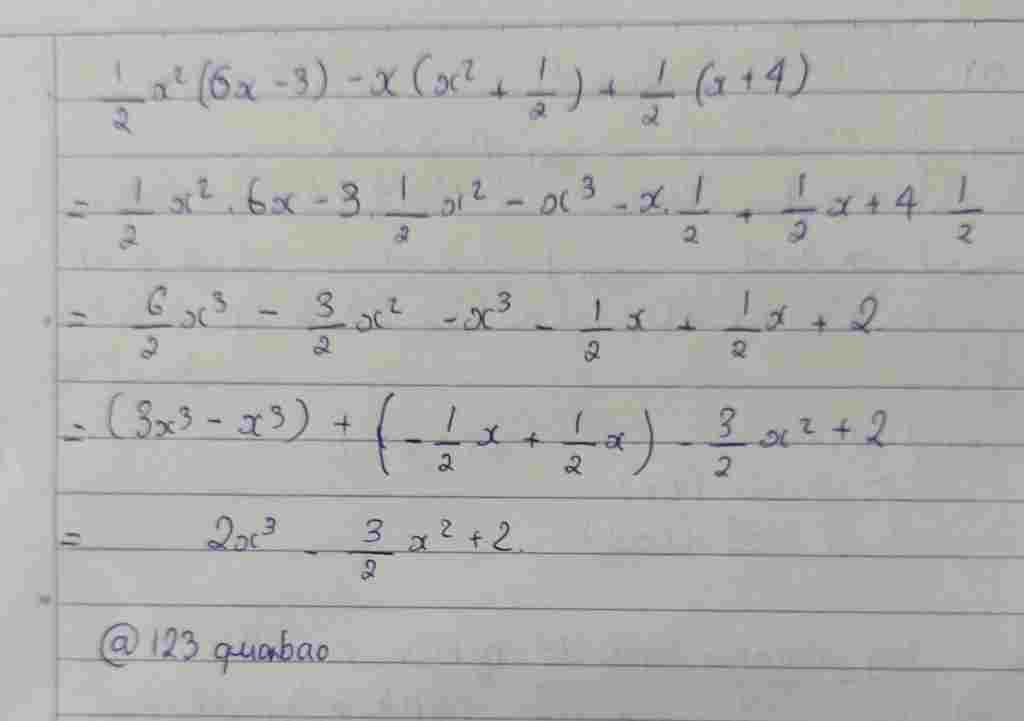 1/2 x² (6x - 3) - x (x² + 1/2) + 1/2 (x + 4)
= 1/2 x² . 6x - 3 . 1/2 x² - x³ - x . 1/2 + 1/2 x + 4 1/2
= 6/2 x³ - 3/2 x² - x³ - 1/2 x + 1/2 x + 2
= (3x³ - x³) + (- 1/2 x + 1/2 x) - 3/2 x² + 2
= 2x³ - 3/2 x² + 2.
@ 123